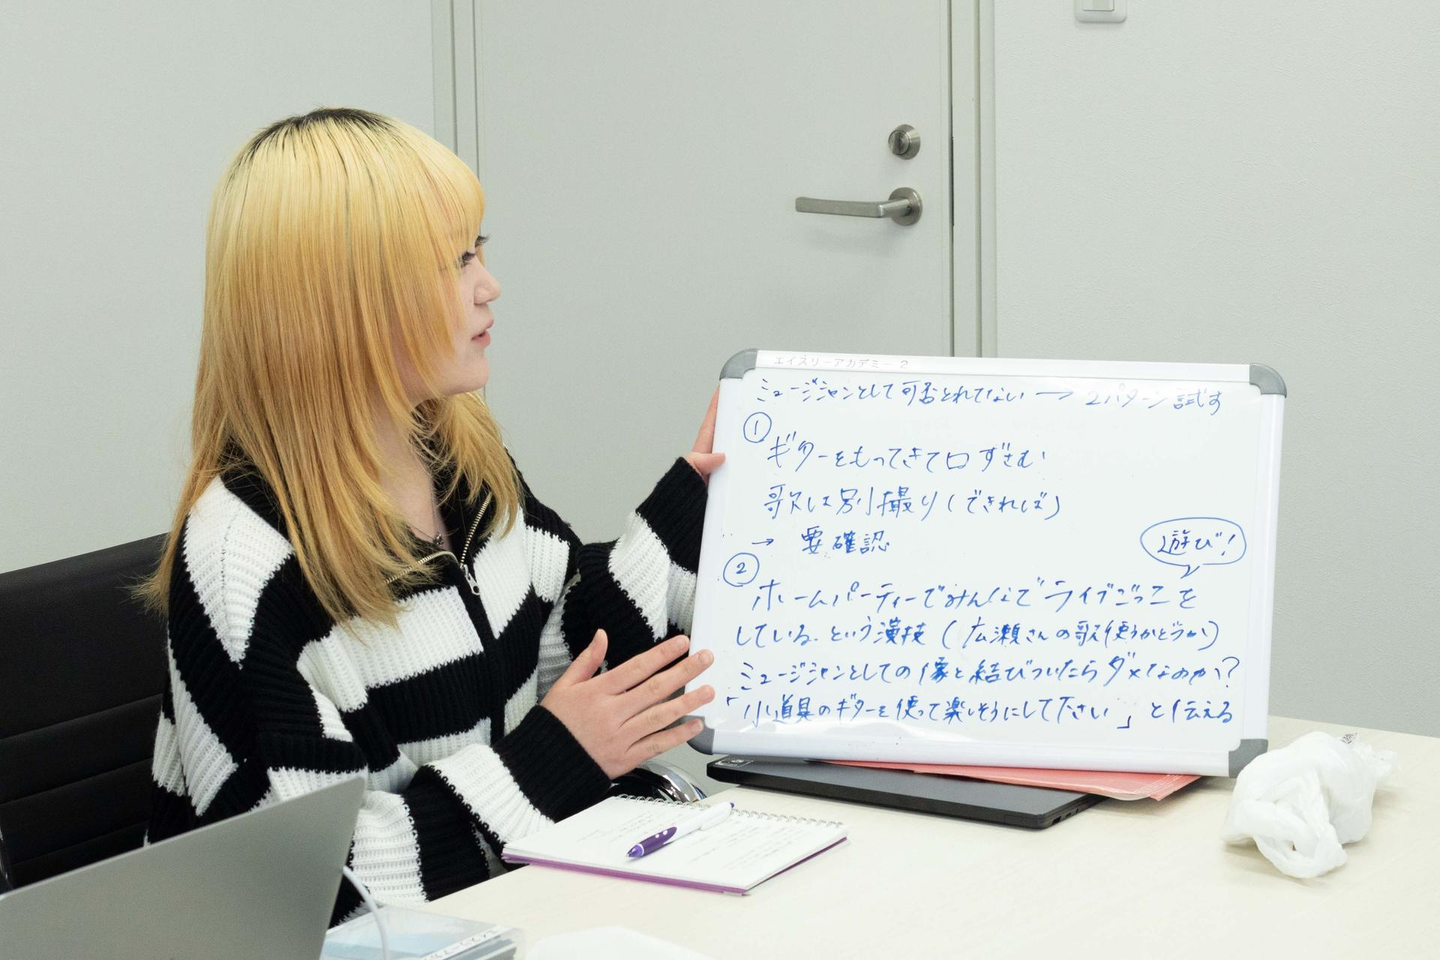 エイスリーアカデミー 2
ミュージシャンとして可否とれてない → 2パターン試す
①
ギターをもってきて口ずさむ
歌は別撮り(できれば)
→ 要確認
遊び!
②
ホームパーティーでみんなでライブごっこを
している。という演技(広瀬さんの歌使うかどうか)
ミュージシャンとしての像と結びついたらダメなのか?
「小道具のギターを使って楽しそうにして下さい」と伝える